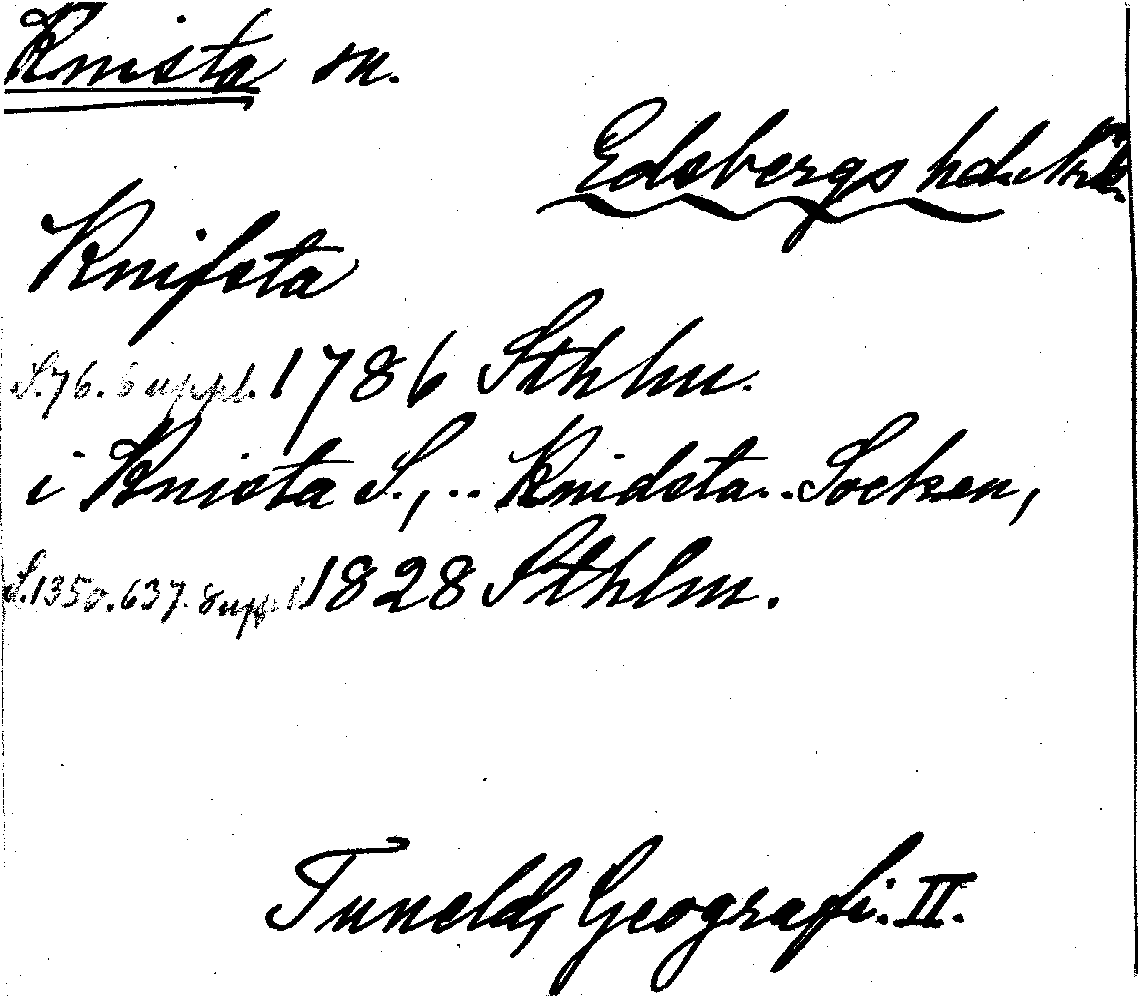 Knista sn.
Edsbergs hd.
Knifsta
S. 76. Suppl. 1786 Sthlm.
i Knista S., .. Knidsta .. Socken,
S. 1350. 637. Suppl. 1828 Sthlm.
Tuneld, Geografi. II.